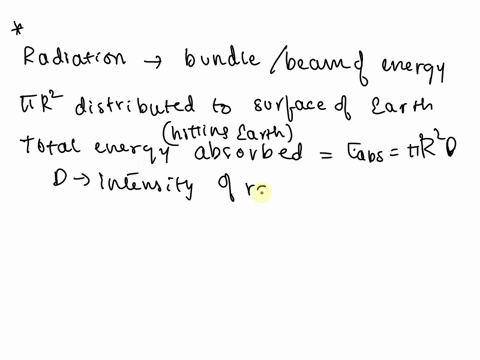 *
Radiation → bundle / beam of energy
πR² distributed to surface of Earth
(hitting Earth)
Total energy absorbed = Eabs = πR²D
D → intensity of r